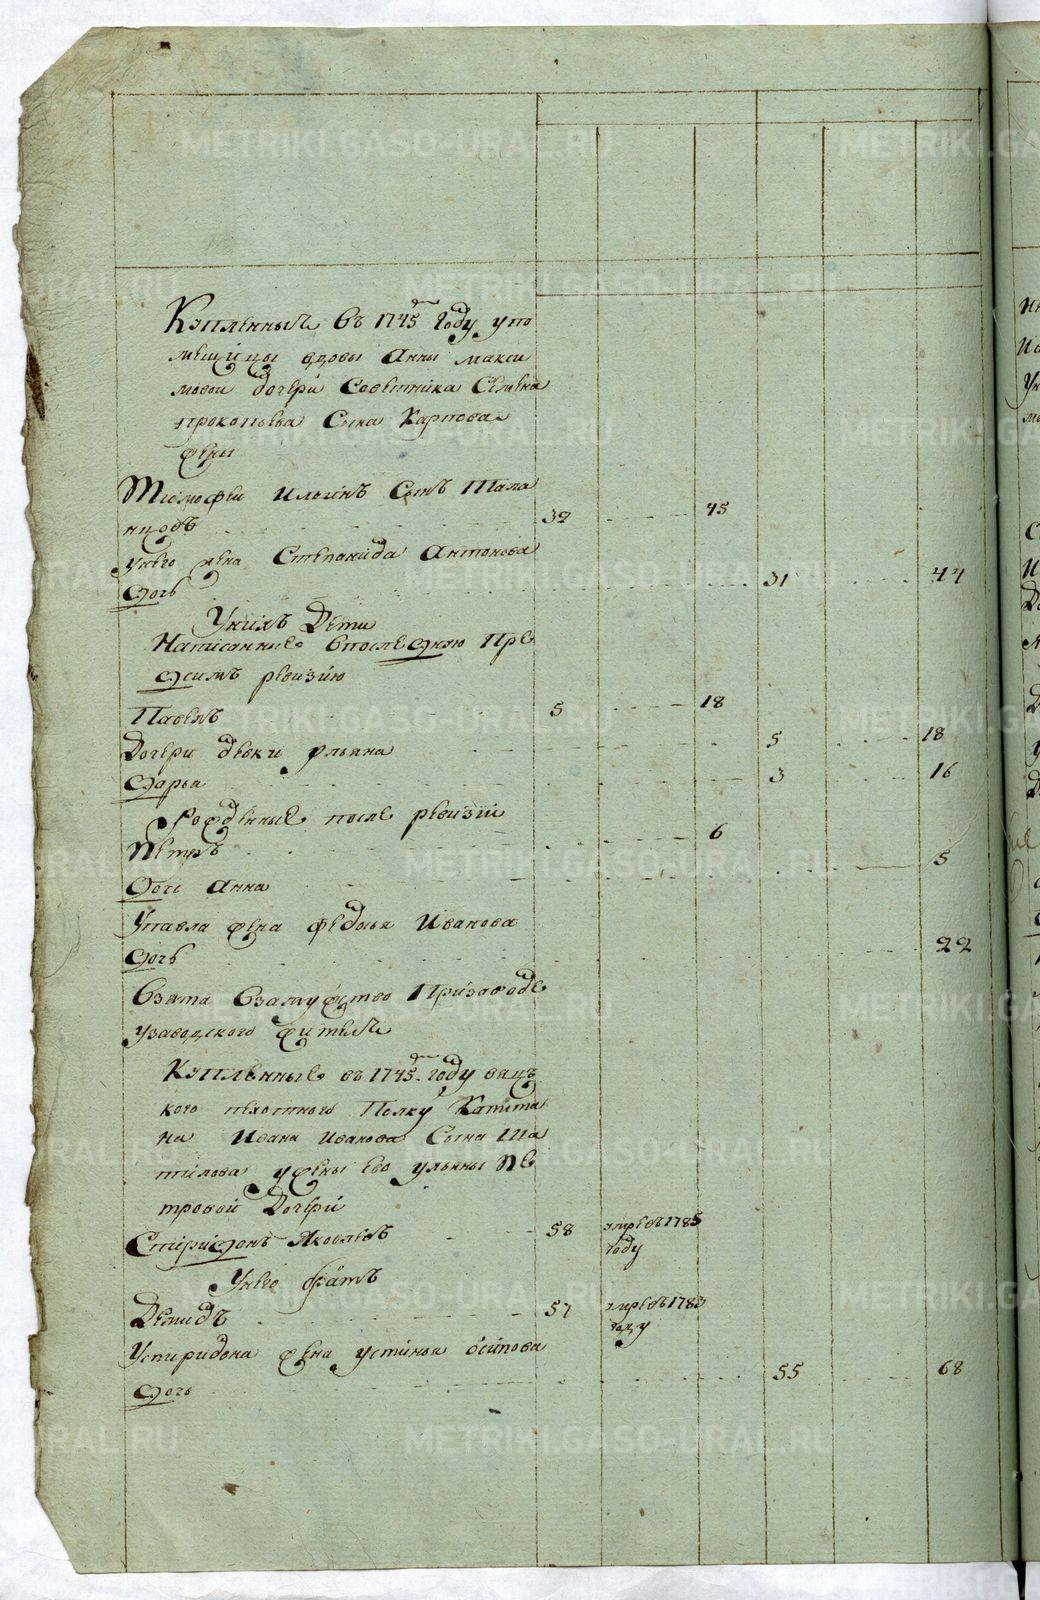 Купленные въ 1745м Году упо
мещицы вдовы Анны макси
мовой дочери Советника Семена
прокопьева Сына Карпова
жены
Тимофей Ильинъ Сынъ Пала
32 45
унего жена Степанида Антонова
дочь 31 44
Унихъ Дети
Написанные впоследнюю Пре
дсимъ ревизию
Павелъ 5 18
Дочери девки ульяна 5 18
дарья 3 16
рожденные после ревизии
Петръ 6
дочь Анна 5
Упавла жена федосья Иванова
дочь 22
Взята Взамужство Призаводе
узаводского жителя
Купленные въ 1745м Году
кого пехотного Полку Капита
на Ивана Иванова Сына Ша
тилова ужены Ево ульяны Пе
тровой Дочери
Спиридонъ Яковлевъ 58 умре въ 1785
году
Унево братъ
Демидъ 57 умре въ 1783
году
Успиридона жена устинья осипова
дочь 55 68
METRIKI.GASO-URAL.RU